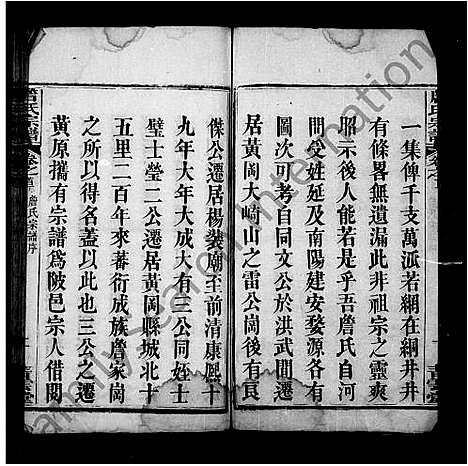 一集俾千支萬派若網在綱井井
有條畧無遺漏此非祖宗之靈爽
昭示後人能若是乎吾詹氏自河
間受姓延及南陽建安婺源各有
圖次可考自同文公於洪武間遷
居黃岡大崎山之雷公崗後有良
傑公遷居楊裝廟至前清康熙十
九年大年大成大有三公同姪士
璧士榮二公遷居黃岡縣城北十
五里二百年來蕃衍成族詹家崗
之所以得名蓋以此也三公之遷
黃原攜有宗譜爲陂邑宗人借閱
詹氏宗譜
卷之首 詹氏宗譜序
FamilySearch International